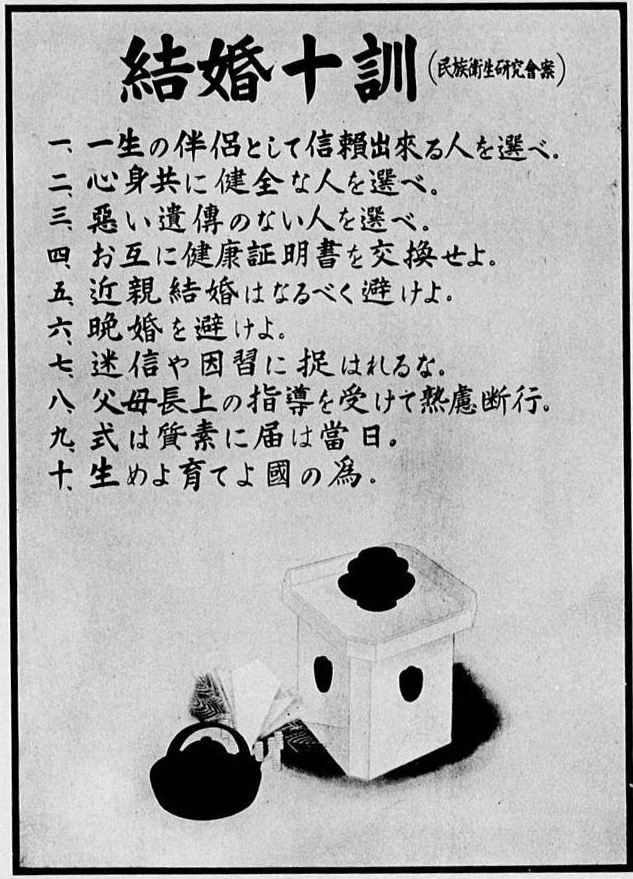 結婚十訓(民族衛生研究會案)
一、一生の伴侶として信頼出來る人を選べ.
二、心身共に健全な人を選べ。
三、惡い遺傳のない人を選べ。
四、お互に健康証明書を交換せよ。
五、近親結婚はなるべく避けよ.
六、晩婚を避けよ。
七、迷信や因習に捉はれるな。
八、父母長上の指導を受けて熟慮断行。
九、式は質素に届は當日。
十、生めよ育てよ國の為.